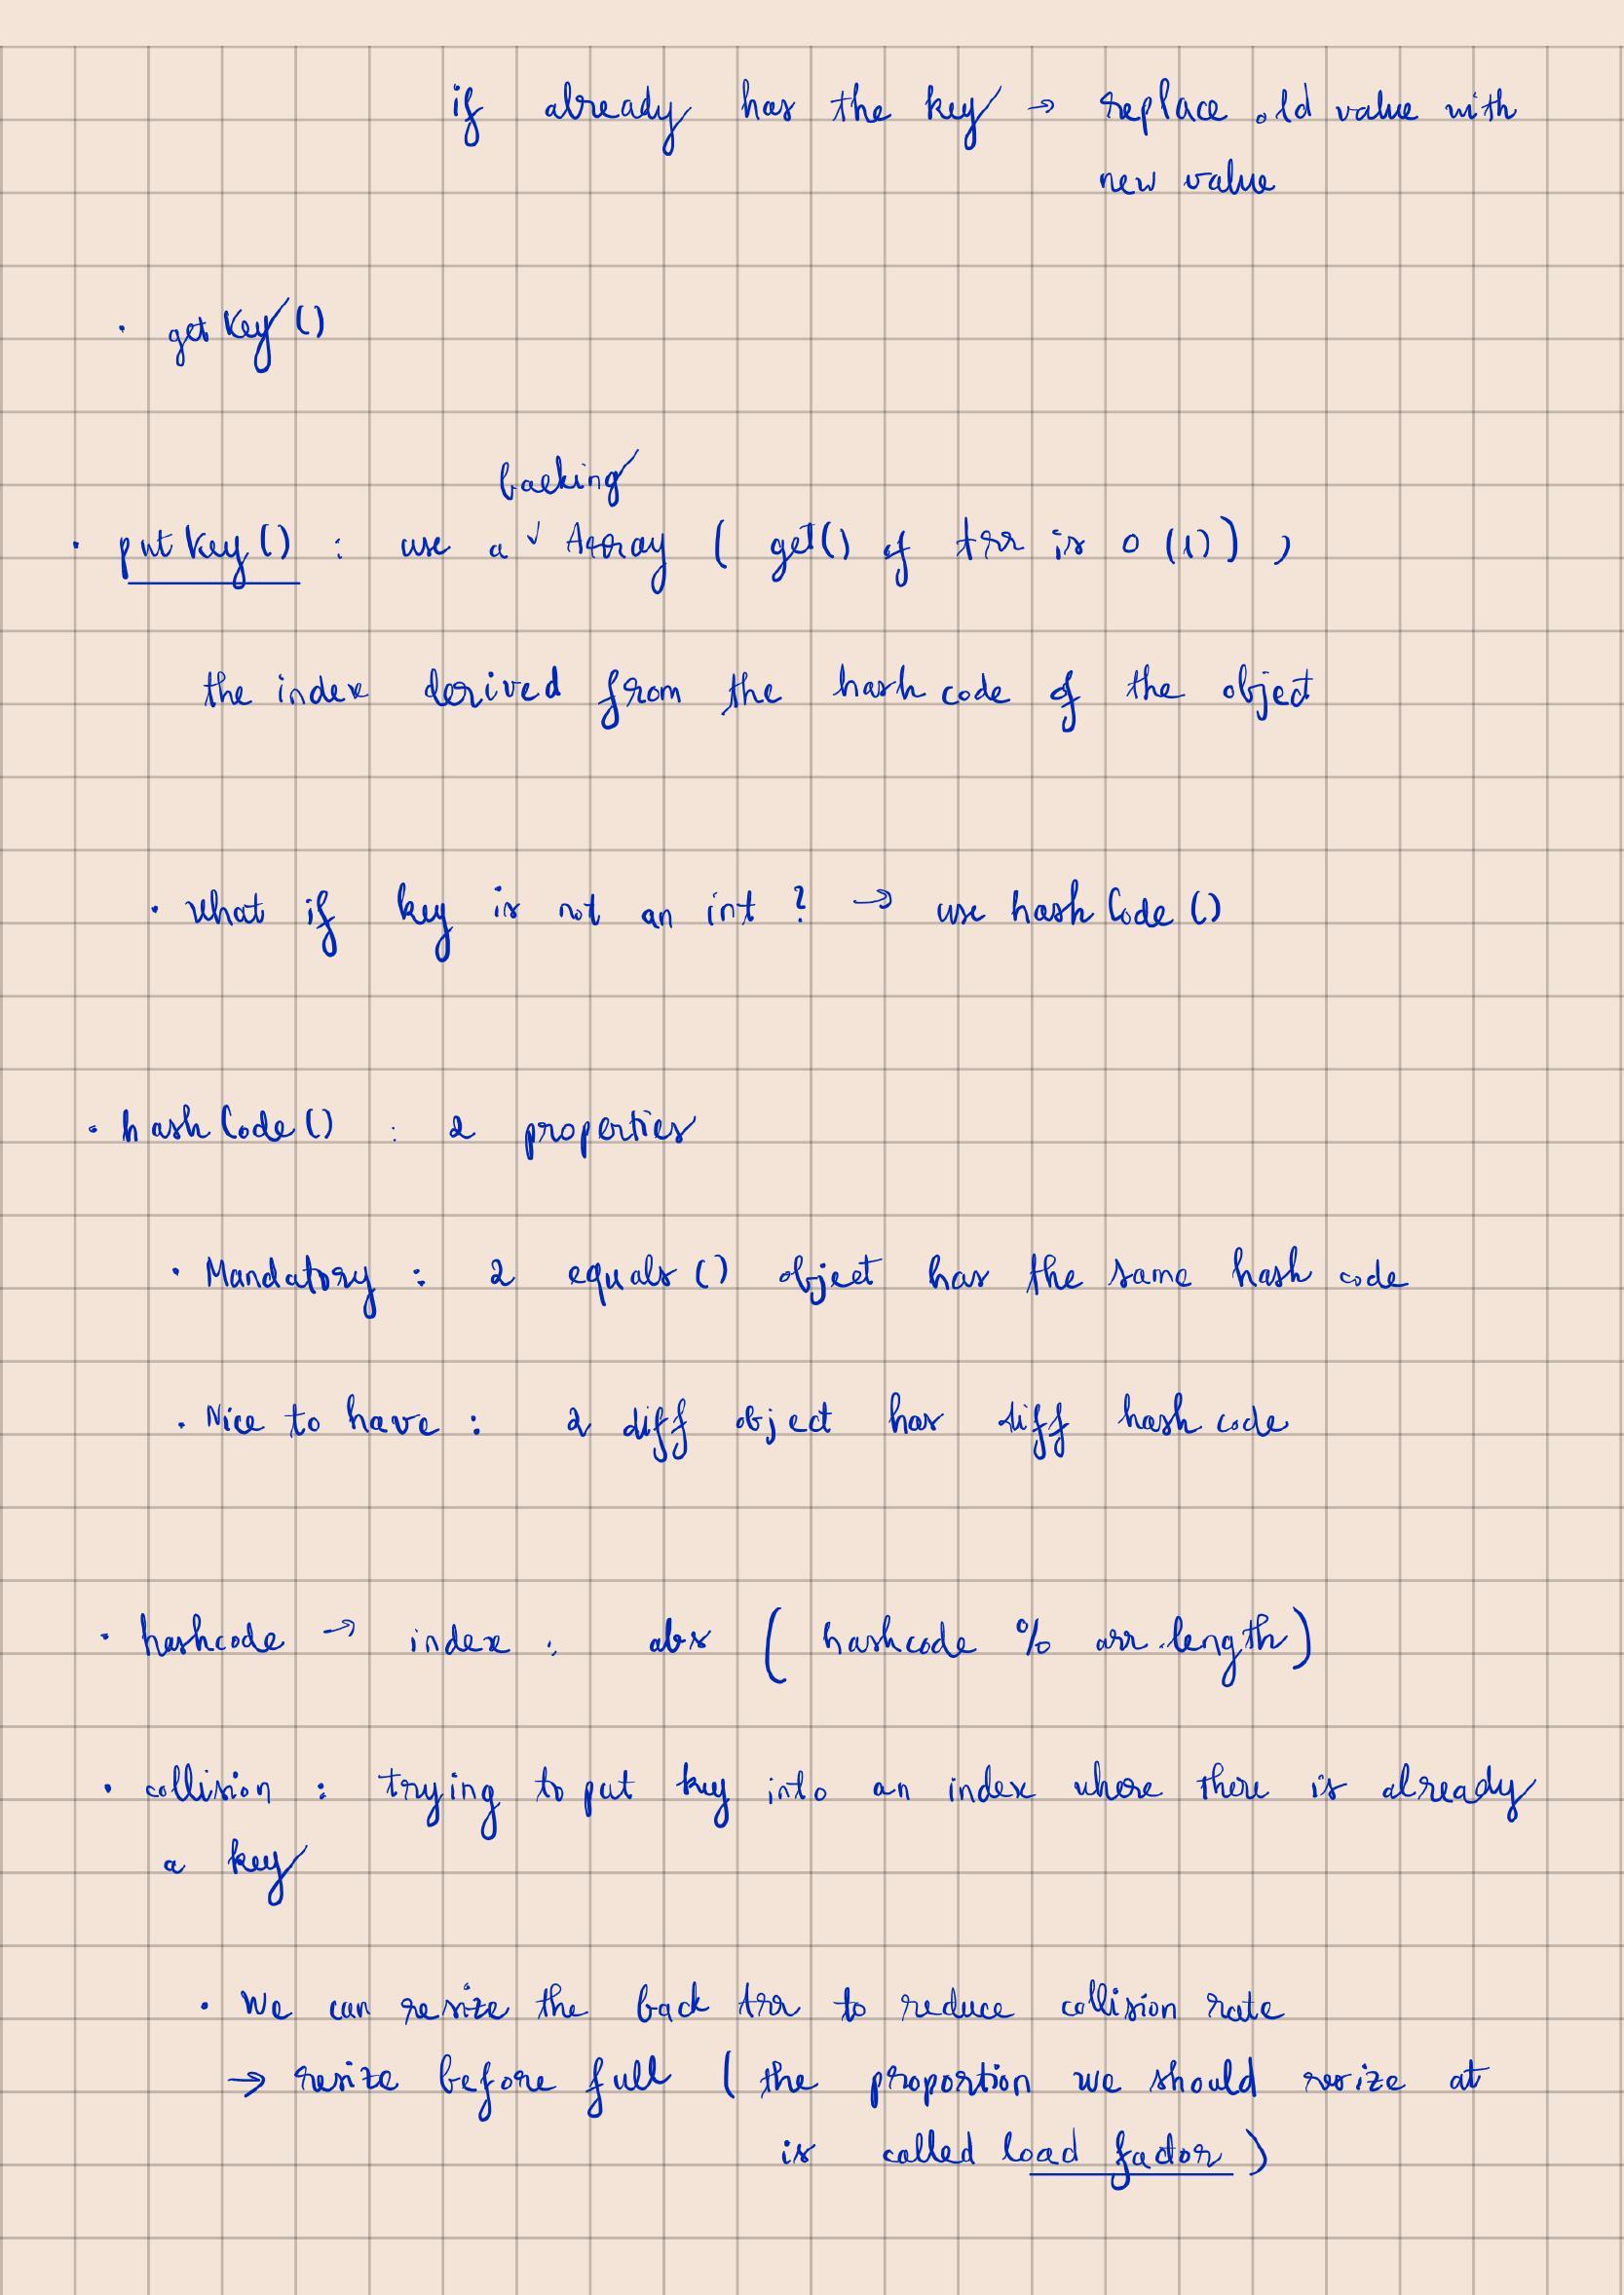 if already has the key → replace old value with
new value
· getKey()
backing
· putKey() : use a ✓ Array ( get() of Arr is O(1) ) ,
the index derived from the hash code of the object
· What if key is not an int ? → use hashCode()
· hashCode() : 2 properties
· Mandatory : 2 equals() object has the same hash code
· Nice to have : 2 diff object has diff hash code
· hashcode → index : abs ( hashcode % arr.length )
· collision : trying to put key into an index where there is already
a key
· We can resize the back Arr to reduce collision rate
→ resize before full ( the proportion we should resize at
is called load factor )